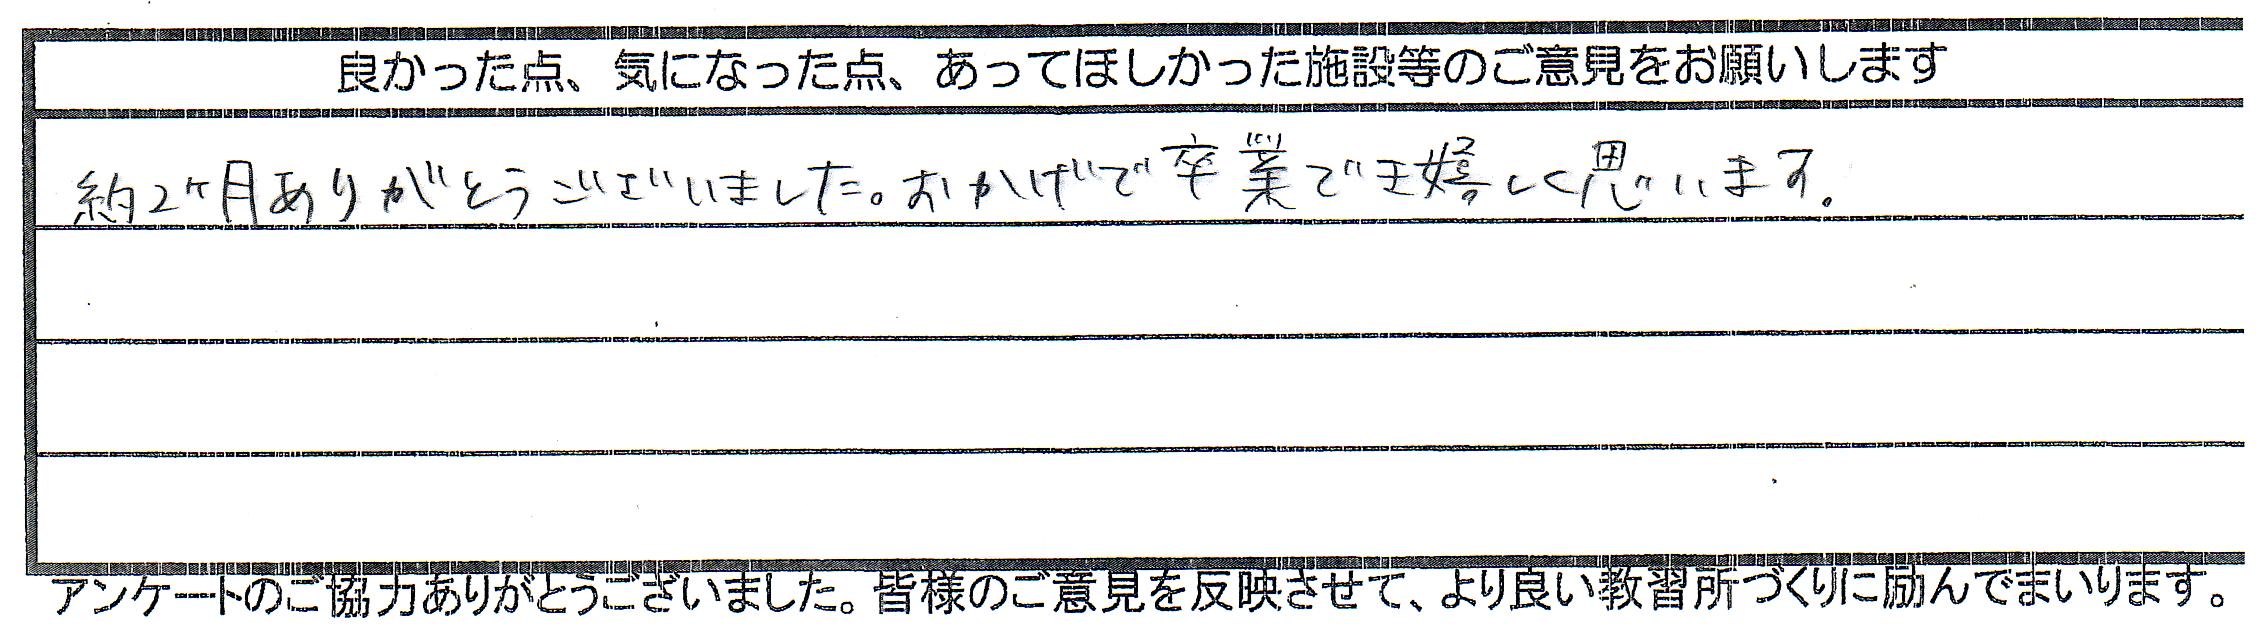 良かった点、気になった点、あってほしかった施設等のご意見をお願いします
約2ヶ月ありがとうございました。おかげで卒業でき嬉しく思います。
アンケートのご協力ありがとうございました。皆様のご意見を反映させて、より良い教習所づくりに励んでまいります。